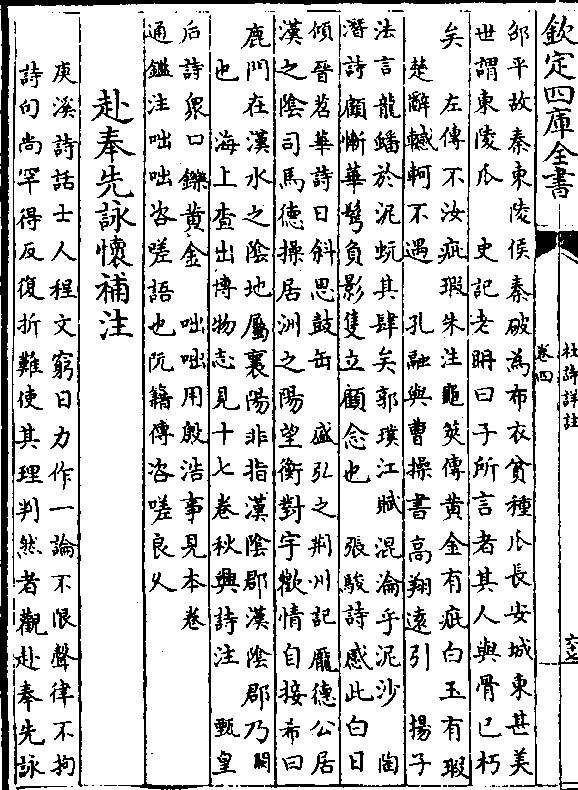 欽定四庫全書
杜詩詳註
卷四
邵平故秦東陵侯秦破為布衣貧種瓜長安城東甚美
世謂東陵瓜　史記老聃曰子所言者其人與骨已朽
矣　左傳不汝疵瑕朱注龜筴傳黄金有疵白玉有瑕
楚辭轗軻不遇　孔融與曹操書高翔遠引　揚子
法言龍蟠於泥蚖其肆矣郭璞江賦混淪乎泥沙　陶
潛詩顧慚華鬢負影隻立顧念也　張駿詩感此白日
傾晉苕華詩曰斜思鼓缶　盛弘之荆州記龎德公居
漢之陰司馬德操居洲之陽望衡對宇歡情自接希曰
鹿門在漢水之陰地屬襄陽非指漢陰郡漢陰郡乃關
也　海上查出博物志見十七卷秋興詩注　甄皇
后詩衆口鑠黄金　咄咄用殷浩事見本卷
通鑑注咄咄咨嗟語也阮籍傳咨嗟良乆
赴奉先詠懷補注
庚溪詩話士人程文窮日力作一論不限聲律不拘
詩句尚罕得反復折難使其理判然者觀赴奉先詠